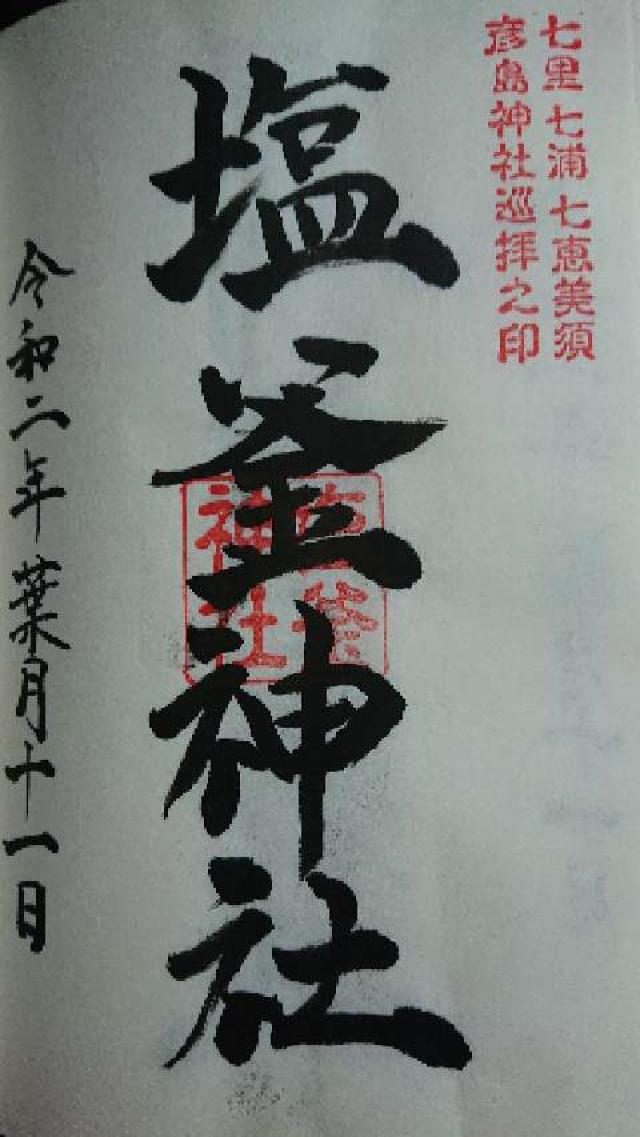 七里七浦七恵美須
彦島神社巡拝之印
塩釜神社
塩釜
神社
令和二年葉月十一日